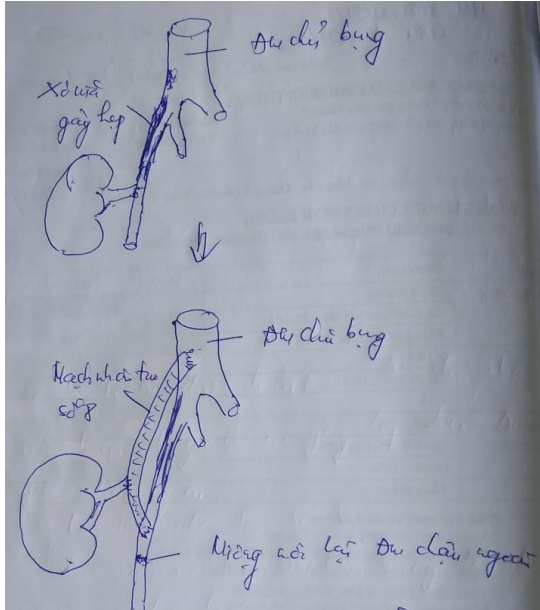 Đm chủ bụng
Xơ vữa
gây hẹp
Đm chủ bụng
Mạch nhân tạo
số 8
Miệng nối lại Đm chậu ngoài